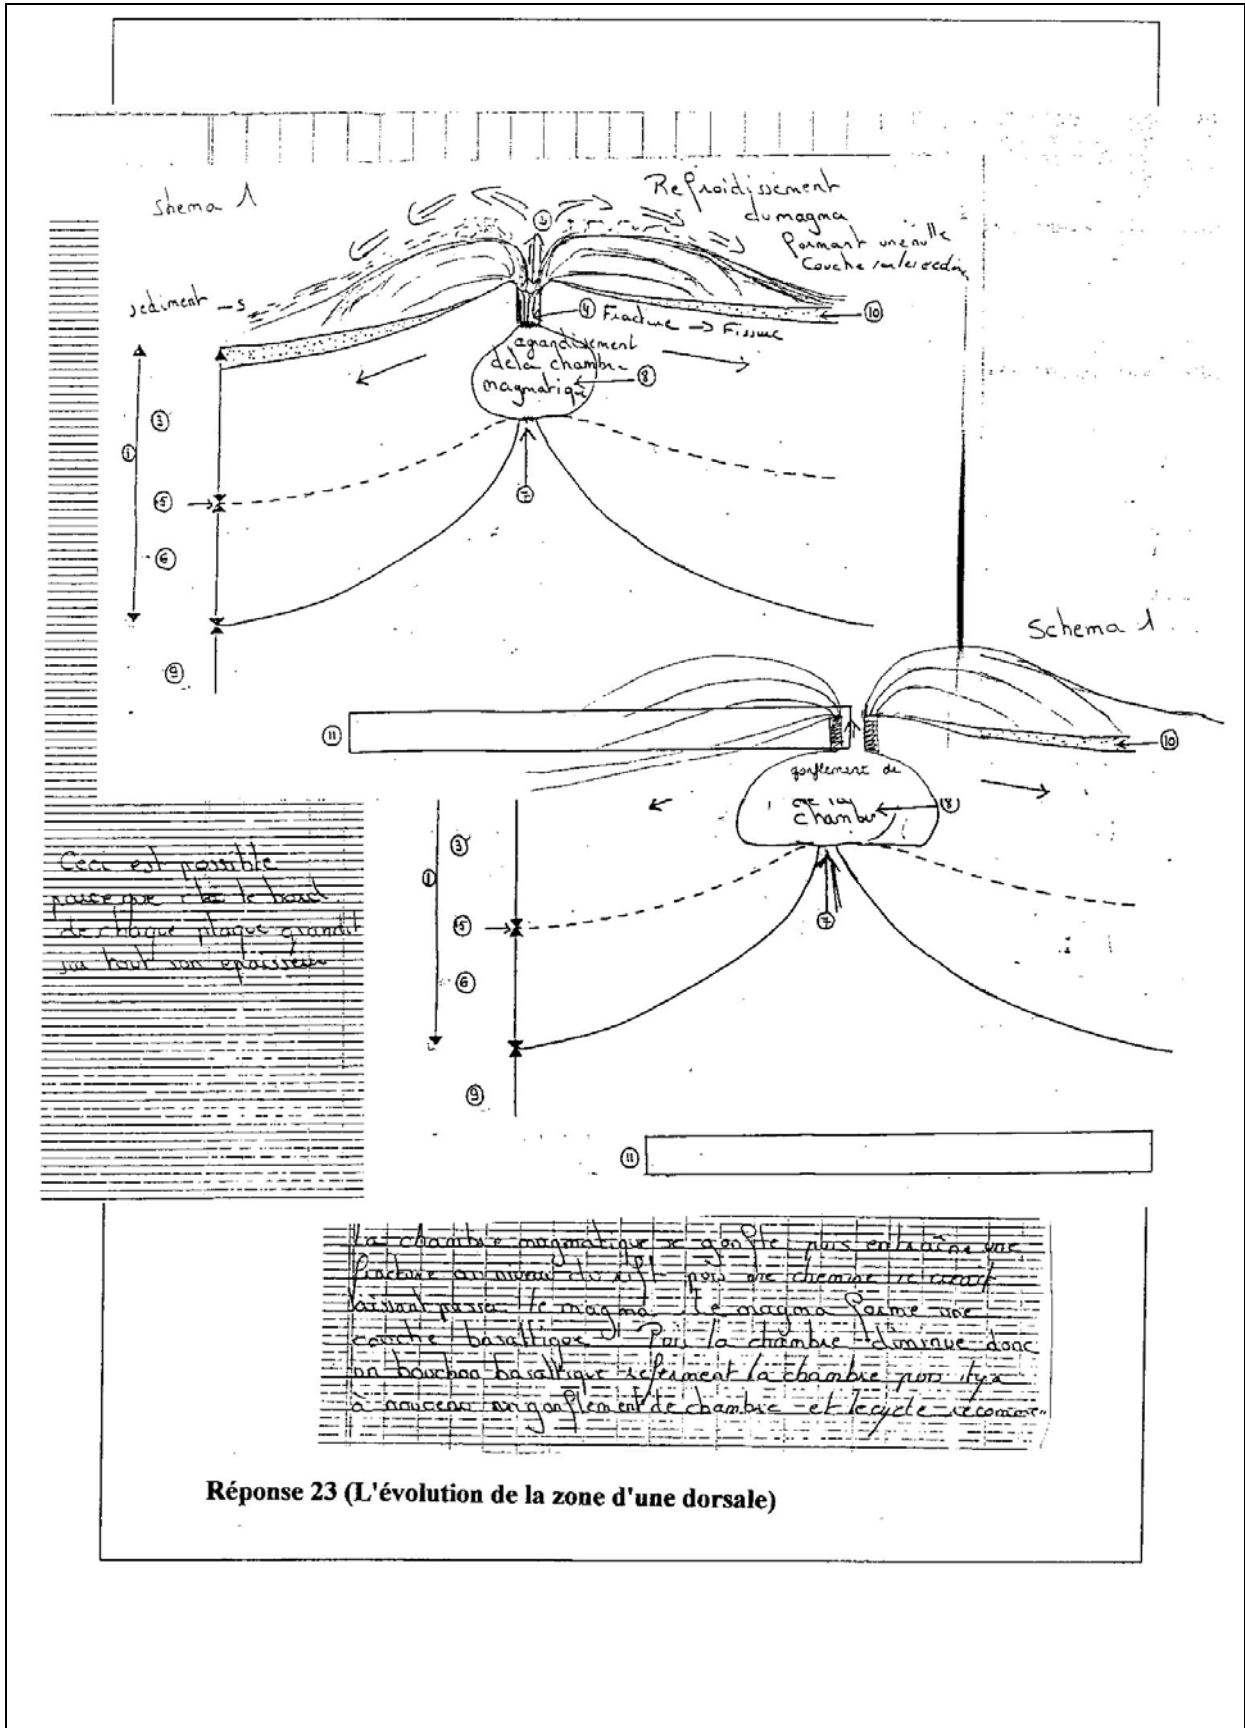 shema 1
Refroidissement
du magma
formant une nulle
Couche sur les
sediment - s
④ Fracture → Fissure
⑩
agrandissement
de la chambre
magmatique
⑧
③
①
⑤
⑦
⑥
⑨
Schema 1
⑪
⑩
gonflement de
chambre
⑧
③
①
⑤
⑦
⑥
⑨
⑪
Ceci est possible
parce que le bord
de chaque plaque grandit
sur tout son epaisseur
La chambre magmatique se gonfle puis entraîne une
fracture au niveau du rift puis une chemine se creait
laissant passer le magma. Le magma forme une
couche basaltique. Puis la chambre diminue donc
un bouchon basaltique referment la chambre puis ily a
à nouveau un gonflement de chambre et le cycle recommen
Réponse 23 (L'évolution de la zone d'une dorsale)